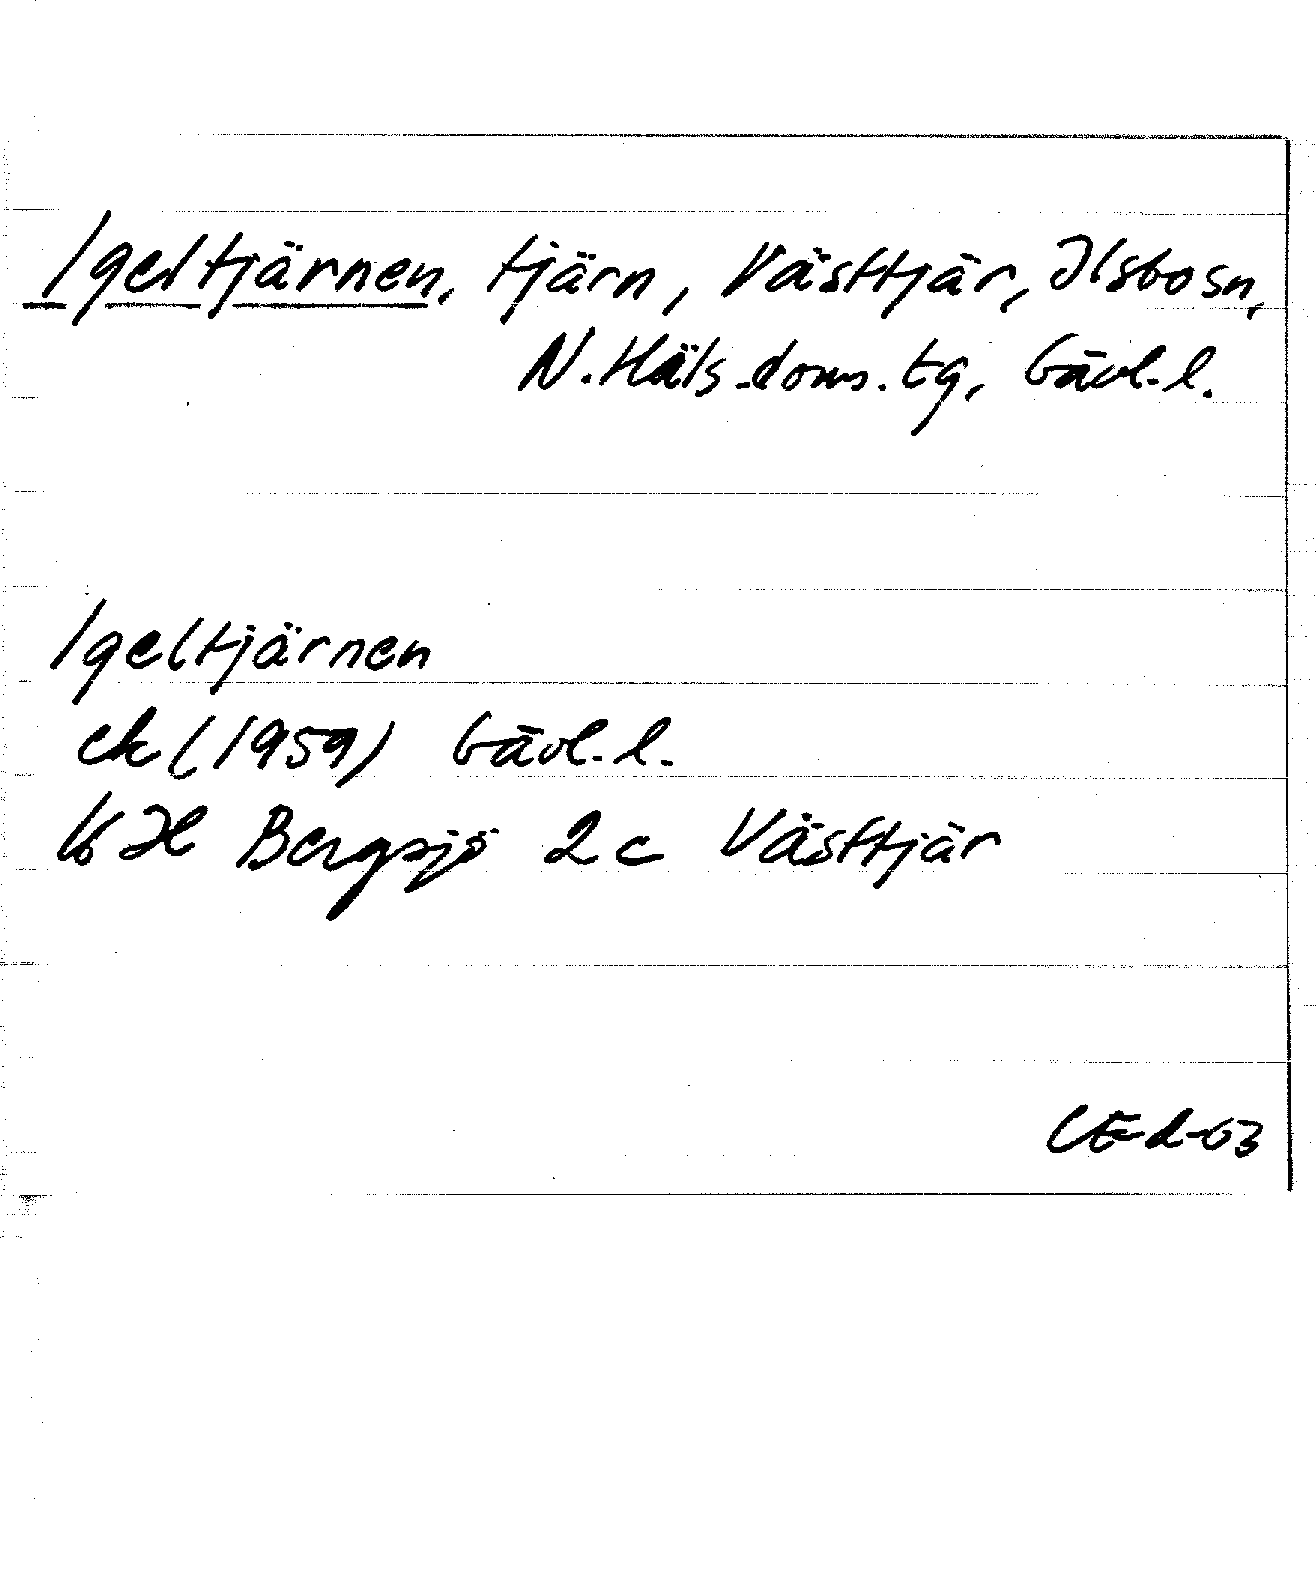 Igeltjärnen, tjärn, Västtjär, Ilsbo sn,
N. Häls. doms. tg, Gävl. l.
Igeltjärnen
ek (1959) Gävl. l.
Bergsjö 2c Västtjär
CE-d-63